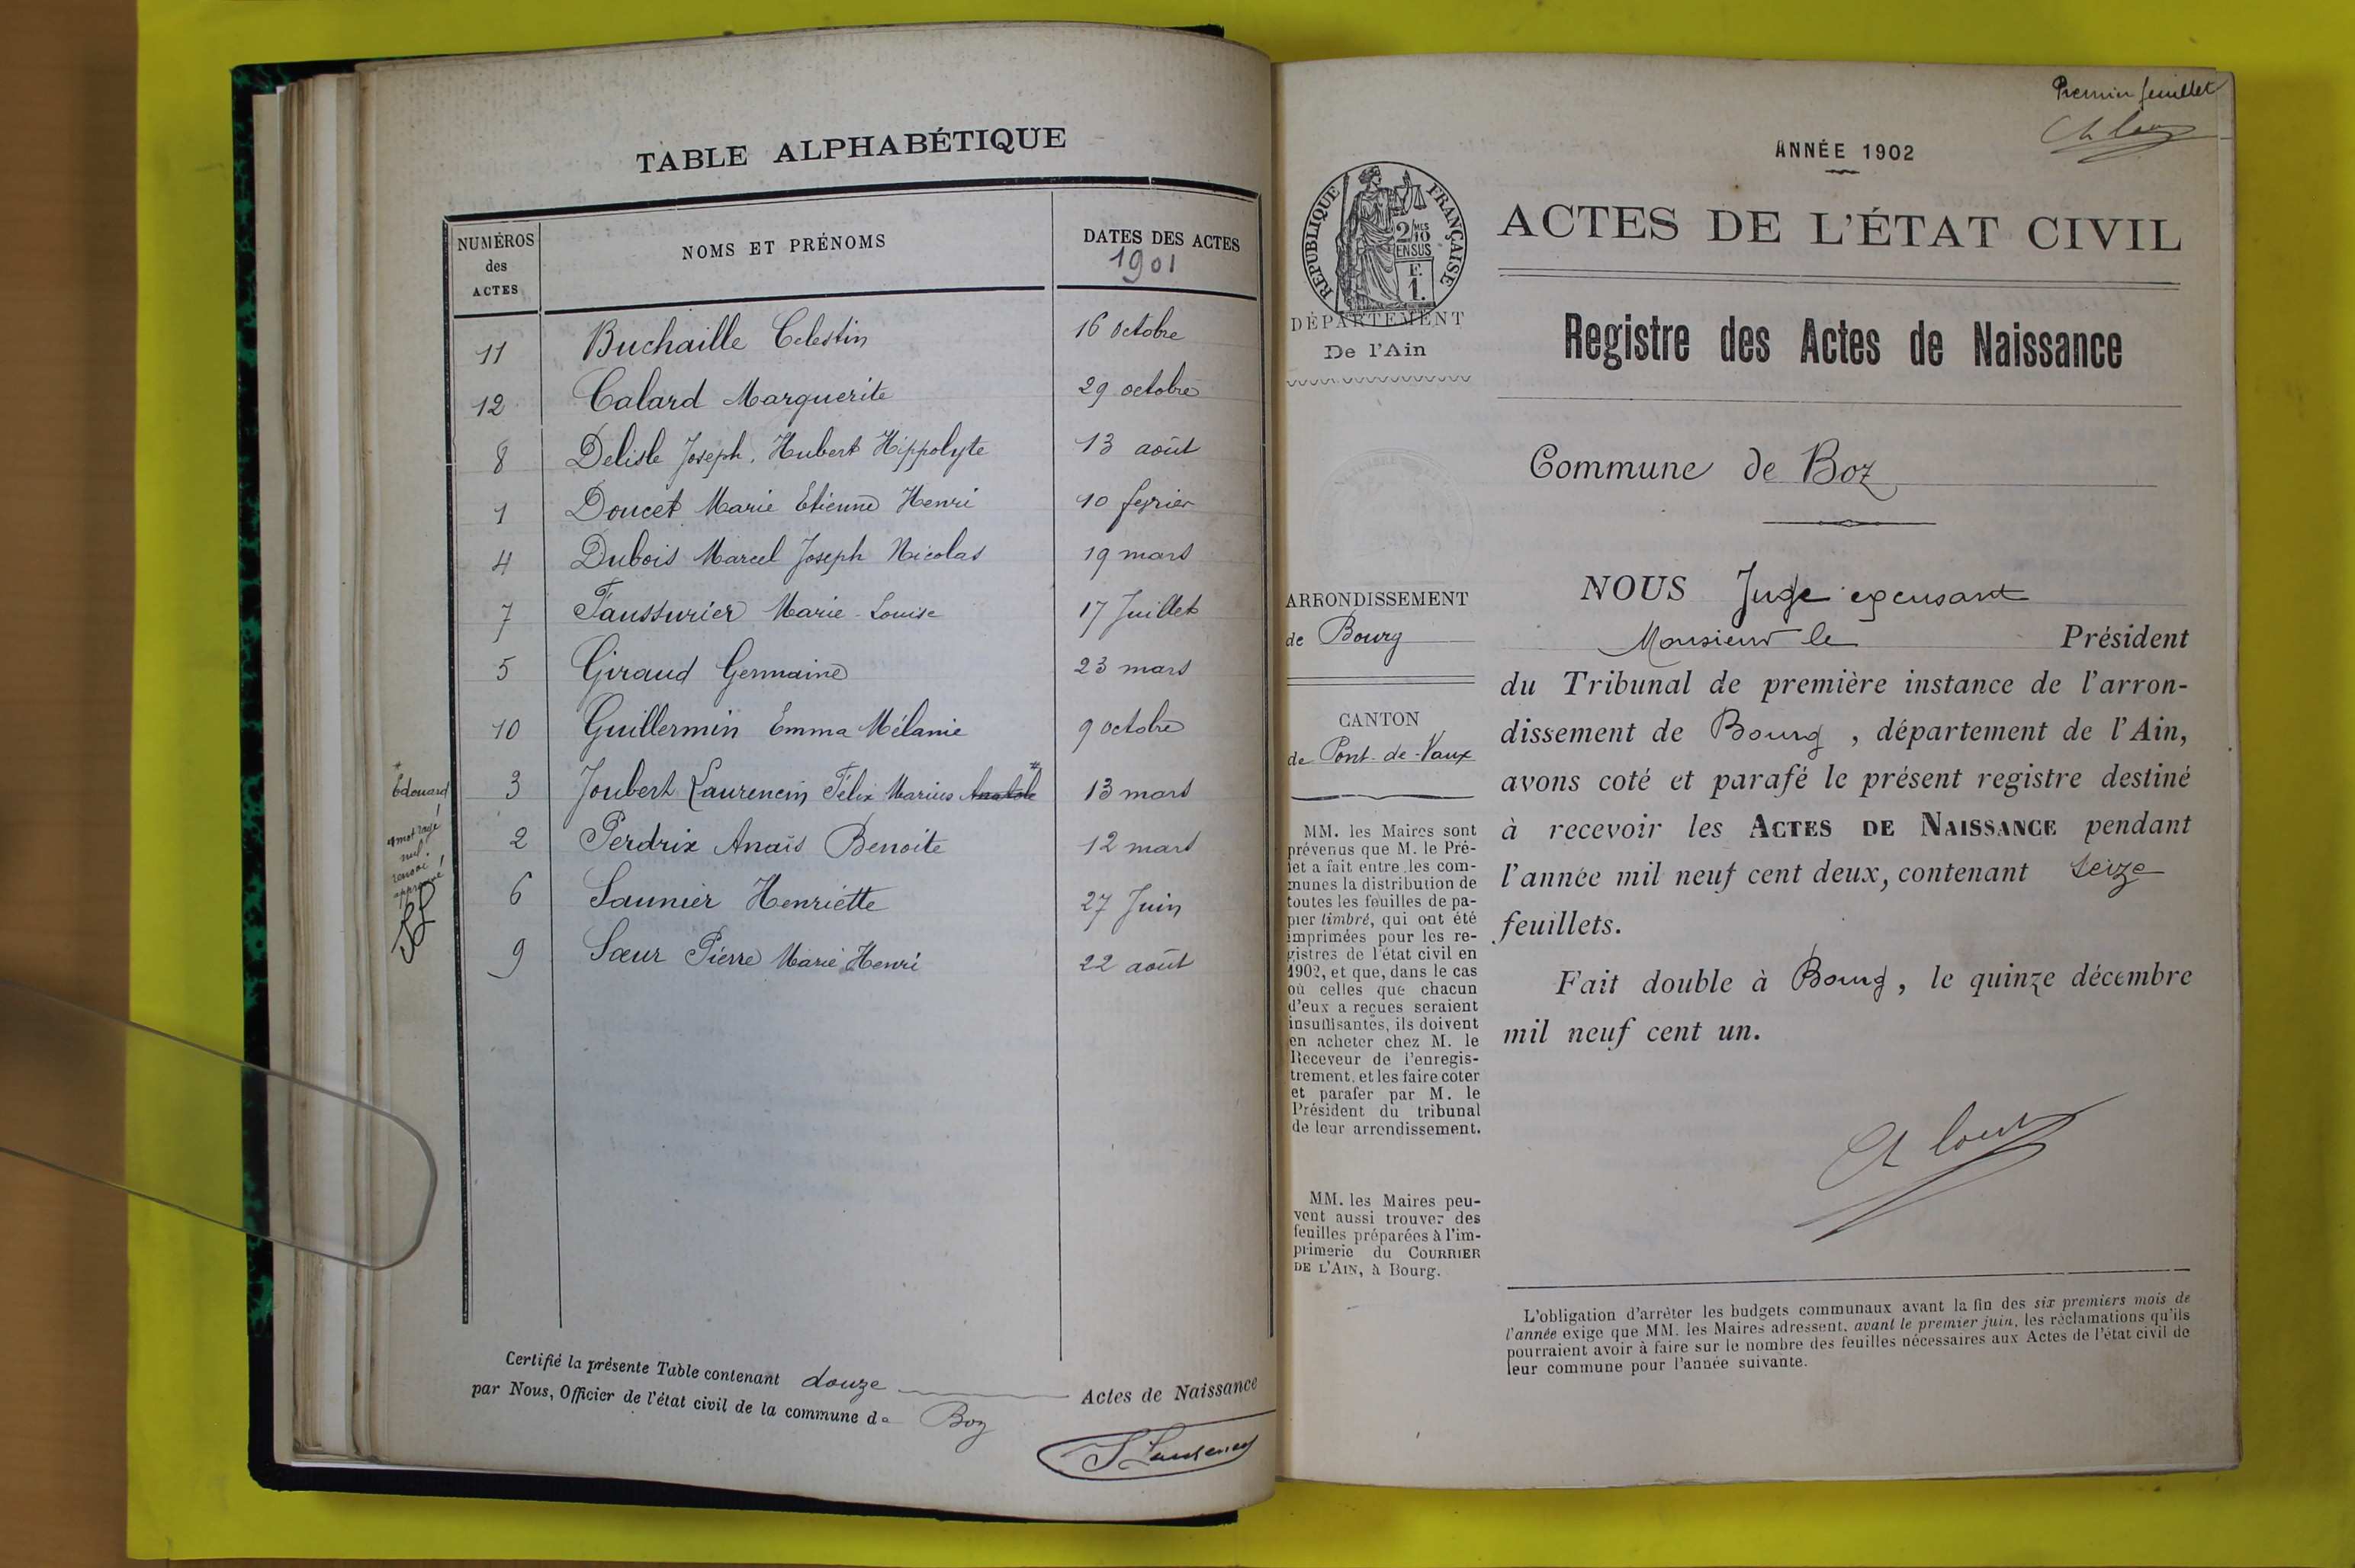 TABLE ALPHABÉTIQUE
NUMÉROS des ACTES
NOMS ET PRÉNOMS
DATES DES ACTES
1901
11 Buchaille Celestin 16 octobre
12 Calard Marguerite 29 octobre
8 Delisle Joseph, Hubert Hippolyte 13 août
1 Doucet Marie Etienne Henri 10 fevrier
4 Dubois Marcel Joseph Nicolas 19 mars
7 Faussurier Marie-Louise 17 Juillet
5 Giraud Germaine 23 mars
10 Guillermin Emma Mélanie 9 octobre
* Edouard
3 Joubert Laurencin Félix Marius Anatole * 13 mars
1 mot rayé
nul.
renvoi
approuvé
2 Perdrix Anaïs Benoite 12 mars
6 Saunier Henriette 27 Juin
9 Sœur Pierre Marie Henri 22 août
Certifié la présente Table contenant douze Actes de Naissance
par Nous, Officier de l'état civil de la commune de Boz
Premier feuillet
ANNÉE 1902
RÉPUBLIQUE FRANÇAISE
2/10 MES
EN SUS
F.
1.
DÉPARTEMENT
De l'Ain
ARRONDISSEMENT
de Bourg
CANTON
de Pont-de-Vaux
MM. les Maires sont
prévenus que M. le Pré-
fet a fait entre les com-
munes la distribution de
toutes les feuilles de pa-
pier timbré, qui ont été
imprimées pour les re-
gistres de l'état civil en
1902, et que, dans le cas
où celles que chacun
d'eux a reçues seraient
insuffisantes, ils doivent
en acheter chez M. le
Receveur de l'enregis-
trement, et les faire coter
et parafer par M. le
Président du tribunal
de leur arrondissement.
MM. les Maires peu-
vent aussi trouver des
feuilles préparées à l'im-
primerie du COURRIER
DE L'AIN, à Bourg.
ACTES DE L'ÉTAT CIVIL
Registre des Actes de Naissance
Commune de Boz
NOUS Juge excusant
Monsieur le Président
du Tribunal de première instance de l'arron-
dissement de Bourg, département de l'Ain,
avons coté et parafé le présent registre destiné
à recevoir les ACTES DE NAISSANCE pendant
l'année mil neuf cent deux, contenant seize
feuillets.
Fait double à Bourg, le quinze décembre
mil neuf cent un.
L'obligation d'arrêter les budgets communaux avant la fin des six premiers mois de
l'année exige que MM. les Maires adressent, avant le premier juin, les réclamations qu'ils
pourraient avoir à faire sur le nombre des feuilles nécessaires aux Actes de l'état civil de
leur commune pour l'année suivante.